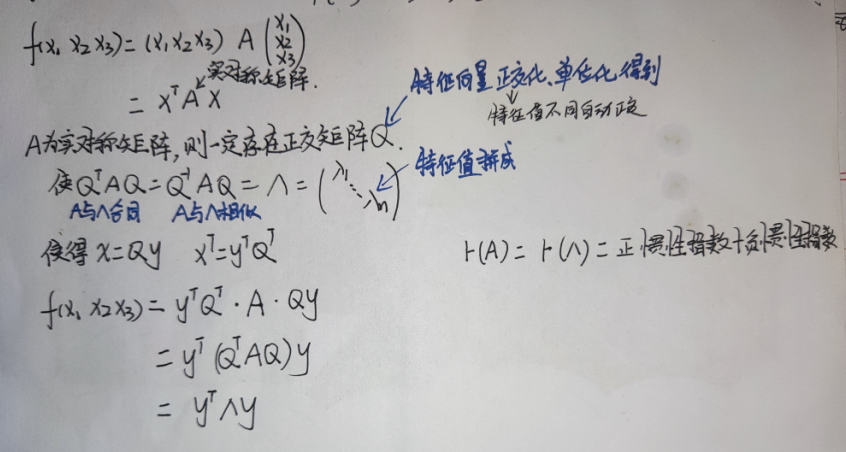 f(x₁ x₂ x₃) = (x₁ x₂ x₃) A (x₁ x₂ x₃)
实对称矩阵.
= xᵀA x
特征向量正交化、单位化得到
特征值不同自动正交
A为实对称矩阵,则一定存在正交矩阵Q.
使QᵀAQ = Q⁻¹AQ = Λ = (λ₁ ⋱ λn)
特征值拼成
A与Λ合同 A与Λ相似
使得 x = Qy xᵀ = yᵀQᵀ
r(A) = r(Λ) = 正惯性指数+负惯性指数
f(x₁ x₂ x₃) = yᵀQᵀ · A · Qy
= yᵀ(QᵀAQ)y
= yᵀΛy